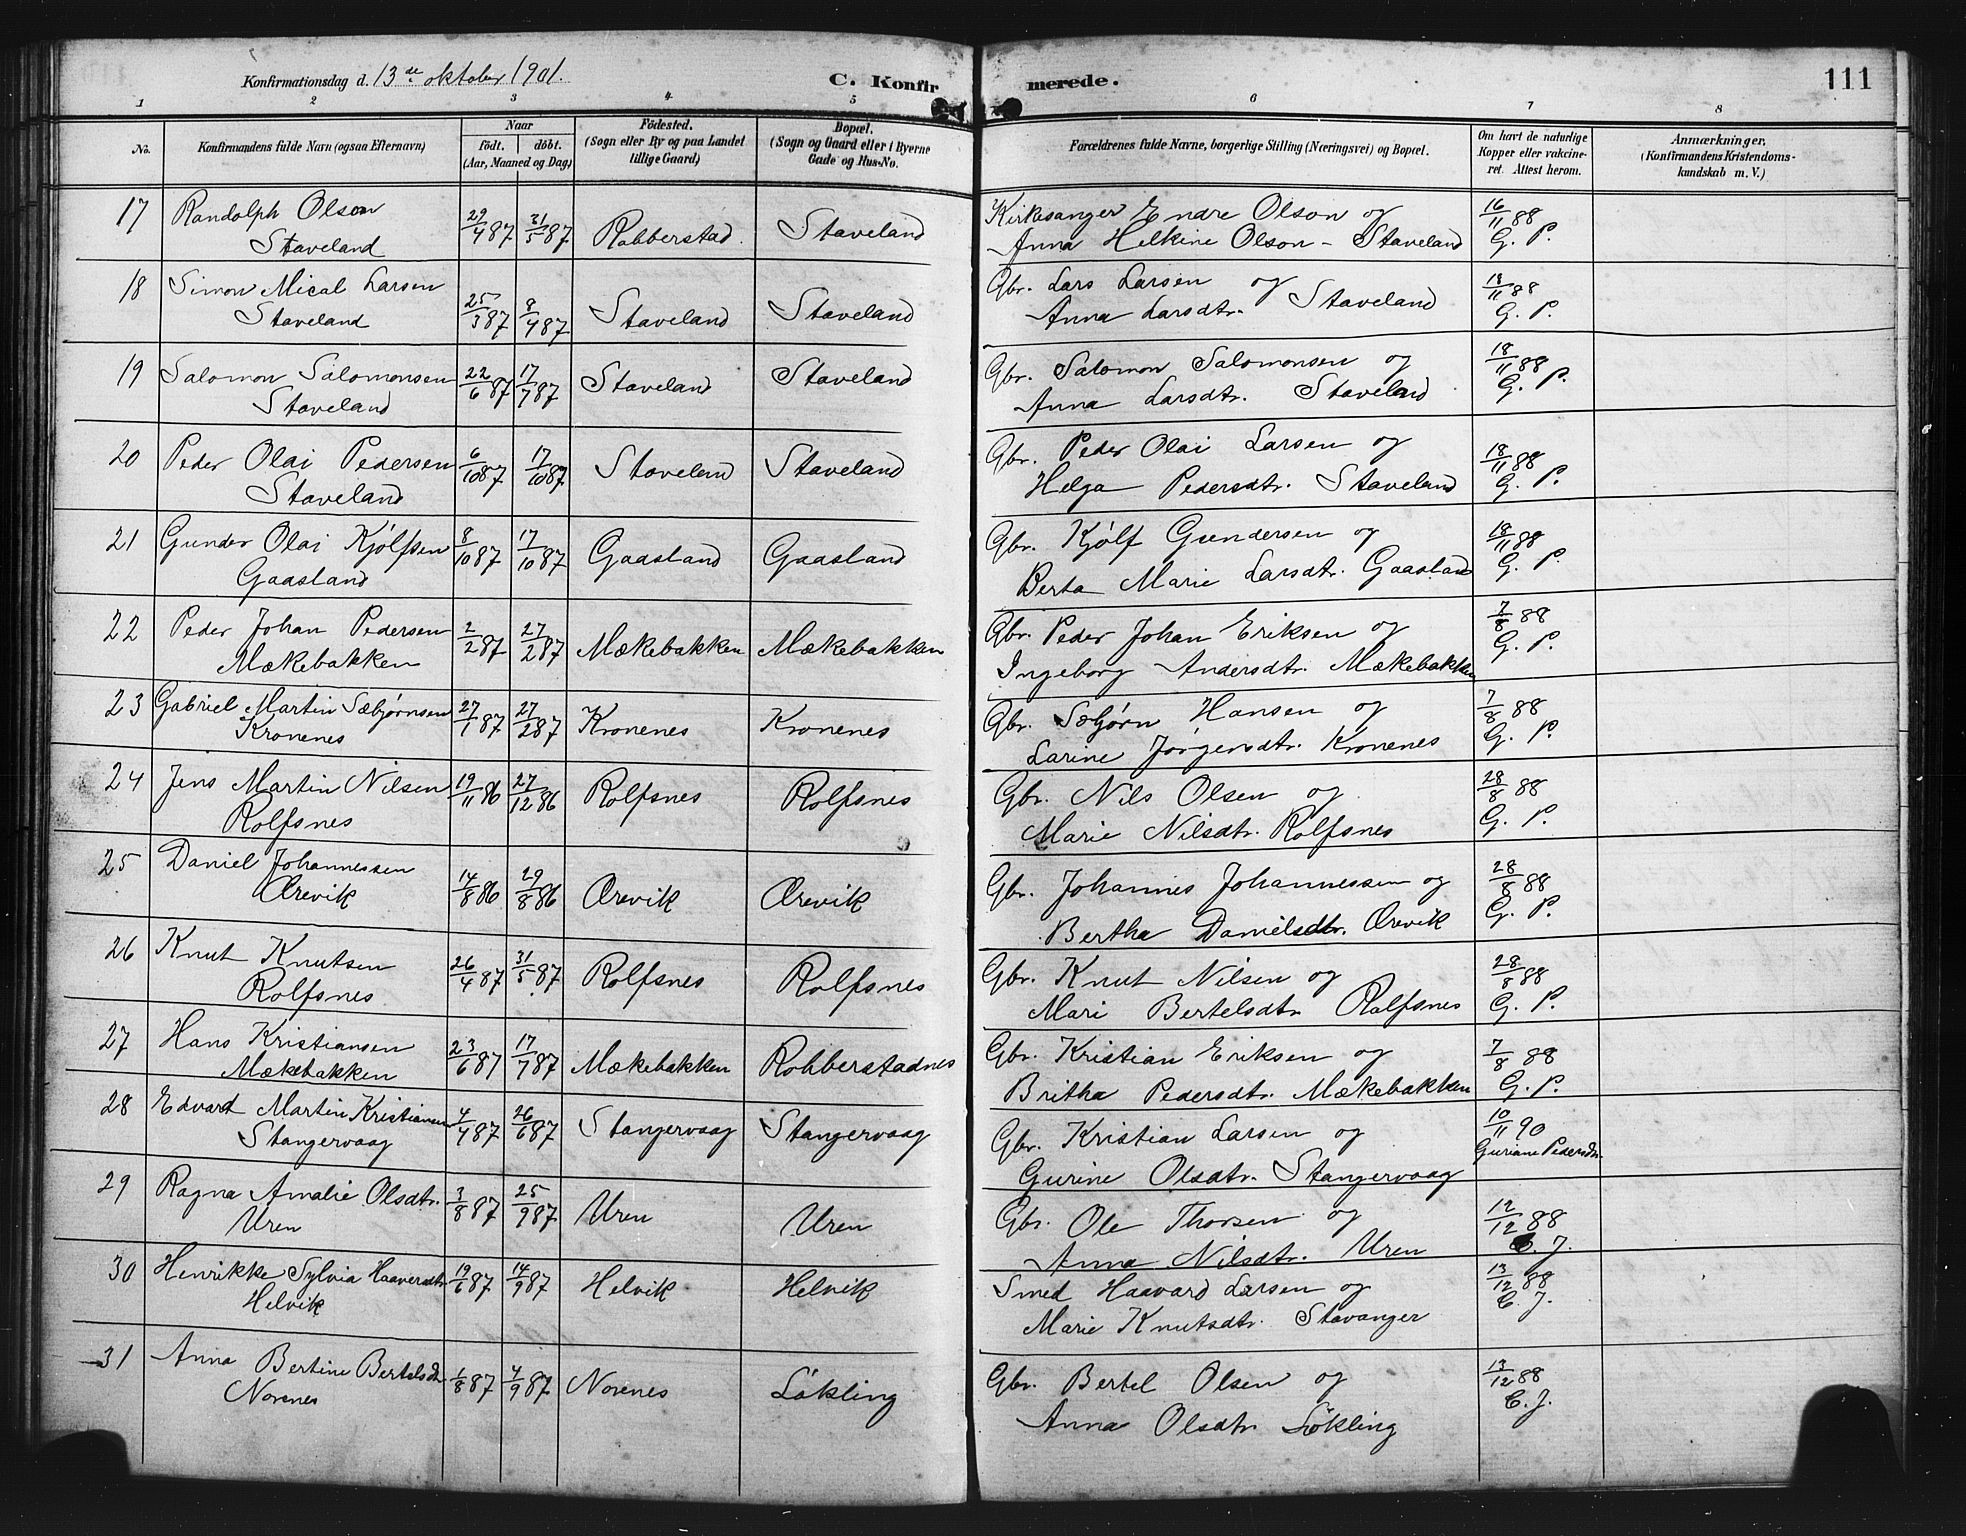 Konfirmationsdag d. 13de oktober 1901.
C. Konfir merede. 111
1 2 3 4 5 6 7 8
No. Konfirmandens fulde Navn (ogsaa Efternavn) Naar Födt. döbt. (Aar, Maaned og Dag) Födested. (Sogn eller By og paa Landet tillige Gaard) Bopæl. (Sogn og Gaard eller i Byerne Gade og Hus-No. Forældrenes fulde Navne, borgerlige Stilling (Næringsvei) og Bopæl. Om havt de naturlige Kopper eller vakcineret. Attest herom. Anmærkninger. (Konfirmandens Kristendomskundskab m. V.)
17 Randolph Olson 29/4 87 31/5 87 Robberstad Staveland Kirkesanger Endre Olson og 16/11 88
Staveland Anna Helkine Olson - Staveland G. P.
18 Simon Mical Larsen 25/3 87 9/4 87 Staveland Staveland Gbr. Lars Larsen og 18/11 88
Staveland Anna Larsdtr. Staveland G. P.
19 Salomon Salomonsen 22/6 87 17/7 87 Staveland Staveland Gbr. Salomon Salomonsen og 18/11 88
Staveland Anna Larsdtr. Staveland G. P.
20 Peder Olai Pedersen 6/10 87 17/10 87 Staveland Staveland Gbr. Peder Olai Larsen og 18/11 88
Staveland Helga Pedersdtr. Staveland G. P.
21 Gunder Olai Kjölfsen 8/10 87 17/10 87 Gaasland Gaasland Gbr. Kjölf Gundersen og 18/11 88
Gaasland Berta Marie Larsdtr. Gaasland G. P.
22 Peder Johan Pedersen 2/2 87 27/2 87 Mækebakken Mækebakken Gbr. Peder Johan Eriksen og 7/8 88
Mækebakken Ingeborg Andersdtr. Mækebakken G. P.
23 Gabriel Martin Sæbjørnsen 27/1 87 27/2 87 Kronenes Kronenes Gbr. Sæbjørn Hansen og 7/8 88
Kronenes Larine Jørgensdtr. Kronenes G. P.
24 Jens Martin Nilsen 19/11 86 27/12 86 Rolfsnes Rolfsnes Gbr. Nils Olsen og 28/8 88
Rolfsnes Marie Nilsdtr. Rolfsnes G. P.
25 Daniel Johannessen 14/8 86 29/8 86 Ørevik Ørevik Gbr. Johannes Johannessen og 28/8 88
Ørevik Bertha Danielsdtr. Ørevik G. P.
26 Knut Knutsen 26/4 87 31/5 87 Rolfsnes Rolfsnes Gbr. Knut Nilsen og 28/8 88
Rolfsnes Mari Bertelsdtr Rolfsnes G. P.
27 Hans Kristiansen 23/6 87 17/7 87 Mækebakken Robberstadnes Gbr. Kristian Eriksen og 7/8 88
Mækebakken Britha Pedersdtr. Mækebakken G. P.
28 Edvard Martin Kristiansen 4/4 87 26/6 87 Stangervaag Stangervaag Gbr. Kristian Larsen og 10/11 90
Stangervaag Gurine Olsdtr. Stangervaag Guriane Pedersdtr.
29 Ragna Amalie Olsdtr. 3/8 87 25/9 87 Uren Uren Gbr. Ole Thorsen og 12/12 88
Uren Anna Nilsdtr. Uren C. J.
30 Henrikke Sylvia Haaversdtr 19/6 87 14/9 87 Helvik Helvik Smed Haavard Larsen og 13/12 88
Helvik Marie Knutsdtr. Stavanger C. J.
31 Anna Bertine Bertelsdtr. 1/8 87 4/9 87 Norenes Løkling Gbr. Bertel Olsen og 13/12 88
Norenes Anna Olsdtr. Løkling C. J.